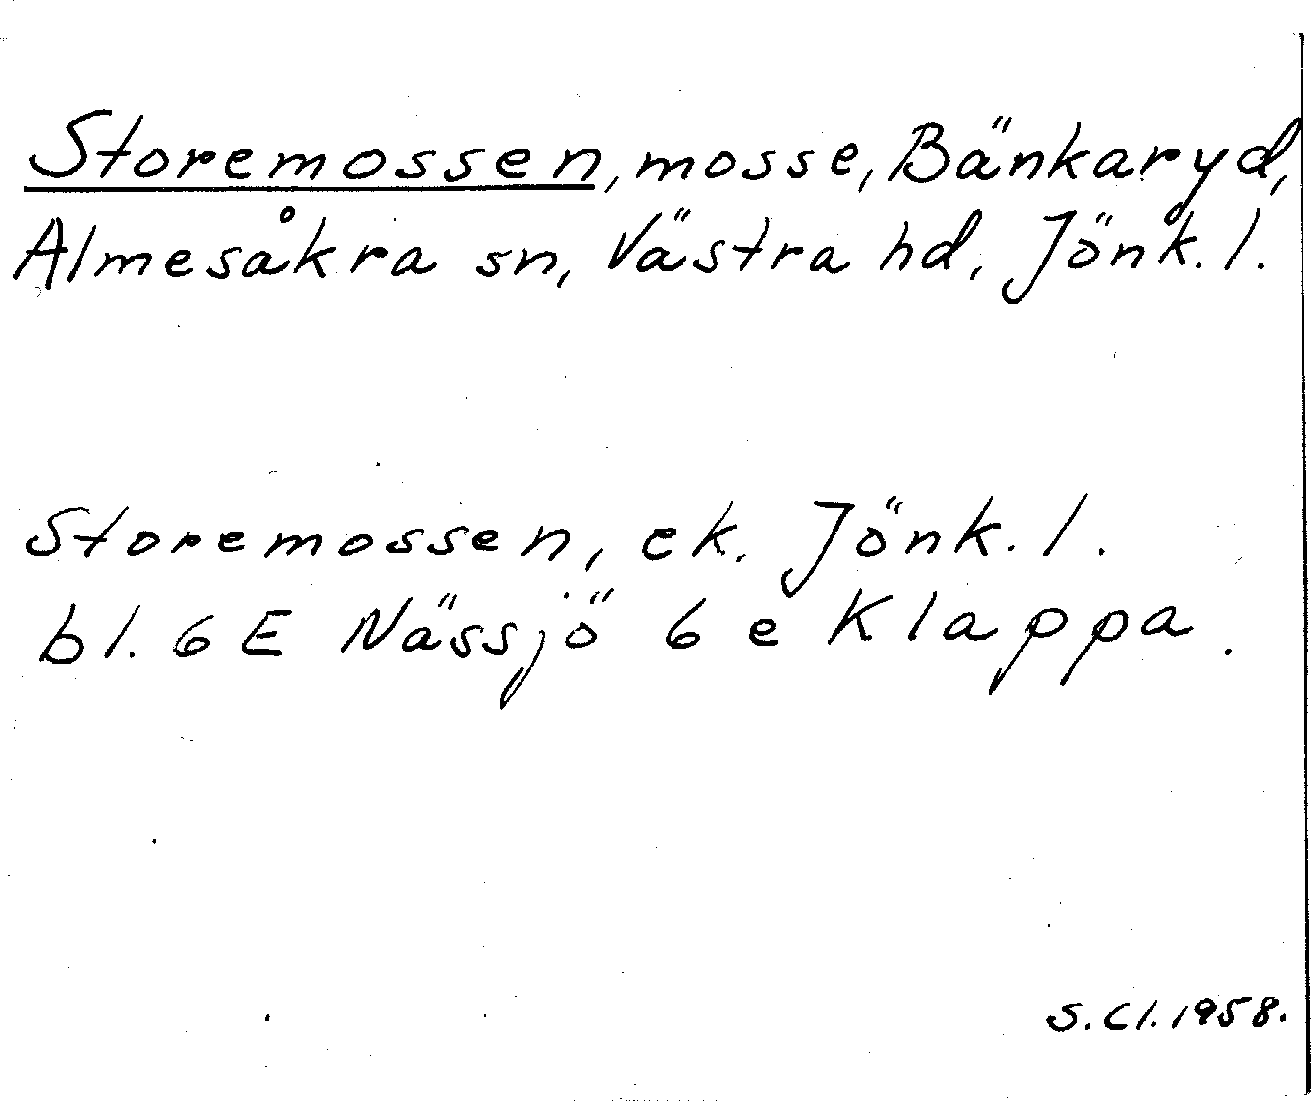 Storemossen, mosse, Bänkaryd,
Almesåkra sn, Västra hd, Jönk. l.
Storemossen, ek. Jönk. l.
bl. 6 E Nässjö 6 e Klappa.
S. Cl. 1958.